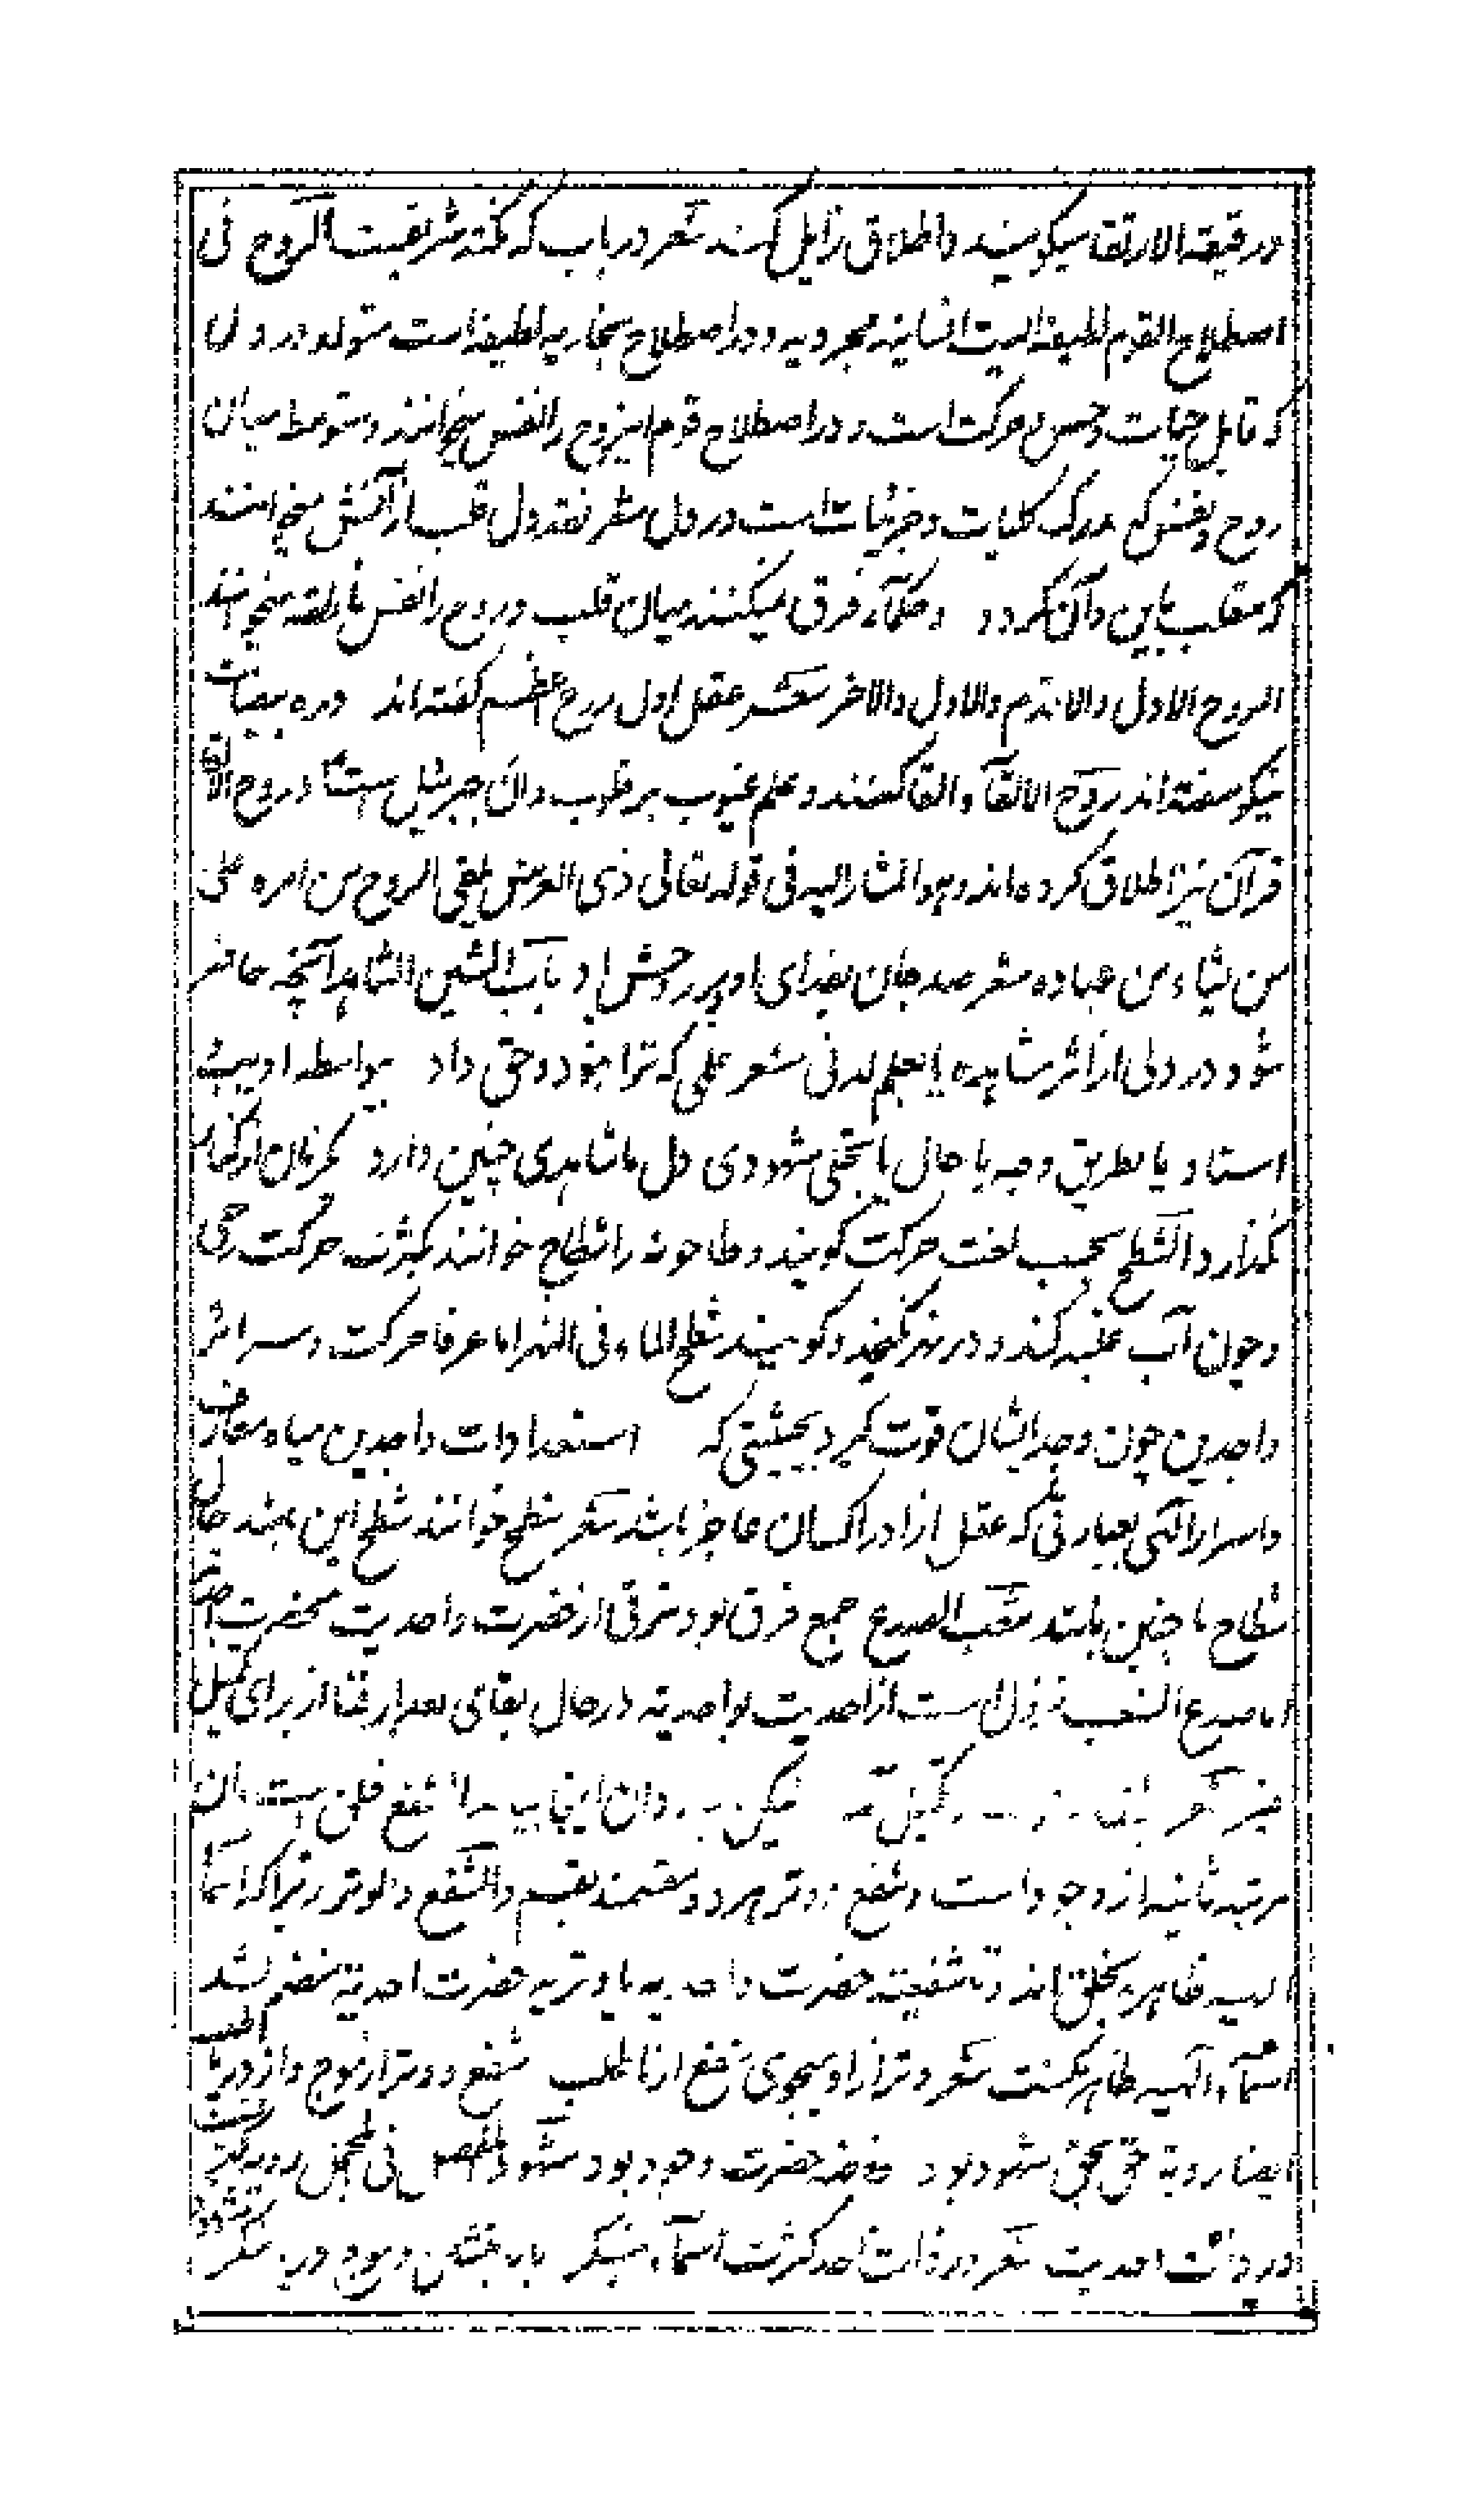 و رقیقة الارتقا میگویند و اطلاق زایل کنند شعر دریاب که نکته شریفست الروح فی
اصطلاح القوم لطیفه ایست انسانیه مجرد یه و در اصطلاح بخاریه لطیفه است متولد در دل
که قابل حیات و حس و حرکت است و در اصطلاح قوم اینروح را نفس میخوانند و متوسط میان
روح و نفس که مدرک کلیات و جزئیات است در دل شعر نقد دل قلب از آتش میخوانند
که منقلب باین و آن گردد و حکماء فرق میکنند میان قلب و روح را نفس ناطقه میخوانند
الروح الاول والاقدم والاول والاخر شعر عقل اول روح اعظم گفته اند دره بیضاش
نیکو سفته اند روح الالقآ و القا کنند و علم غیوب بر قلوب و آن جبرئیل است و روح
قرآن نیز اطلاق کرده اند و هو المشار الیه فی قوله تعالی ذی العرش یلقی الروح من امره علی
من یشاء من عباده شعر صد جان بفدای او و بر روحش او باب الشین الشاهد آنچه حاضر
شود در دل از اثر مشاهده یا بعلم لدنی شعر علمی که ترا بخود و حق داد بواسطه ادیب
استاد یا بطریق وجد یا حال یا تجلی شهودی دل ما شاهدی چنین دارد
بگذارد الشطح بحسب لغت حرکت گویند و طاحونه را شطاح خوانند بکثرت حرکت رحی
و چون آب غلبه کند و در نهر نگنجد گویند شطح الماء فی النهر اما عرفا حرکت و سرائر
واجدین چون وجد ایشان قوت گیرد بحیثیتی که استعدادات واجدین میاه معارف
و اسرار الهی بعبارتی که عقل از ادراک آن عاجز باشد شعر شطح خوانند شطح این باشد حال
شطاح ما چنین باشد شعب الصدع جمع فرق بود و ترقی از حضرت واحدیت بحضرت
اما صدع الشعب نزول است از احدیت بواحدیته در حال بقای بعد از فنا از برای تکمیل
غیر شعر تکمیل دان این الشفع خلق است و آن
مرتبه ثانیه از وجود است و شفع و وتر هر دو مقسمند بقسم والشفع والوتر زیرا که اسمآ
الهیه ظاهر بخلق اند و تا شفعیت حضرت واحدیه با وتریه حضرت احدیة منضم نشد
اسمآء الهیه ظاهر نگشت شعر وتر از او بجوی شفع از ما طلب شفع و وتر از موج و از دریا
ایضا رویة حق بحق شهود بود حضرت وجود بود شهود المفصل فی المجمل رویة کثرت
در ذات احدیت شعر در ذات احد کثرت اسمآء بنگر یاب و موج و دریا بنگر